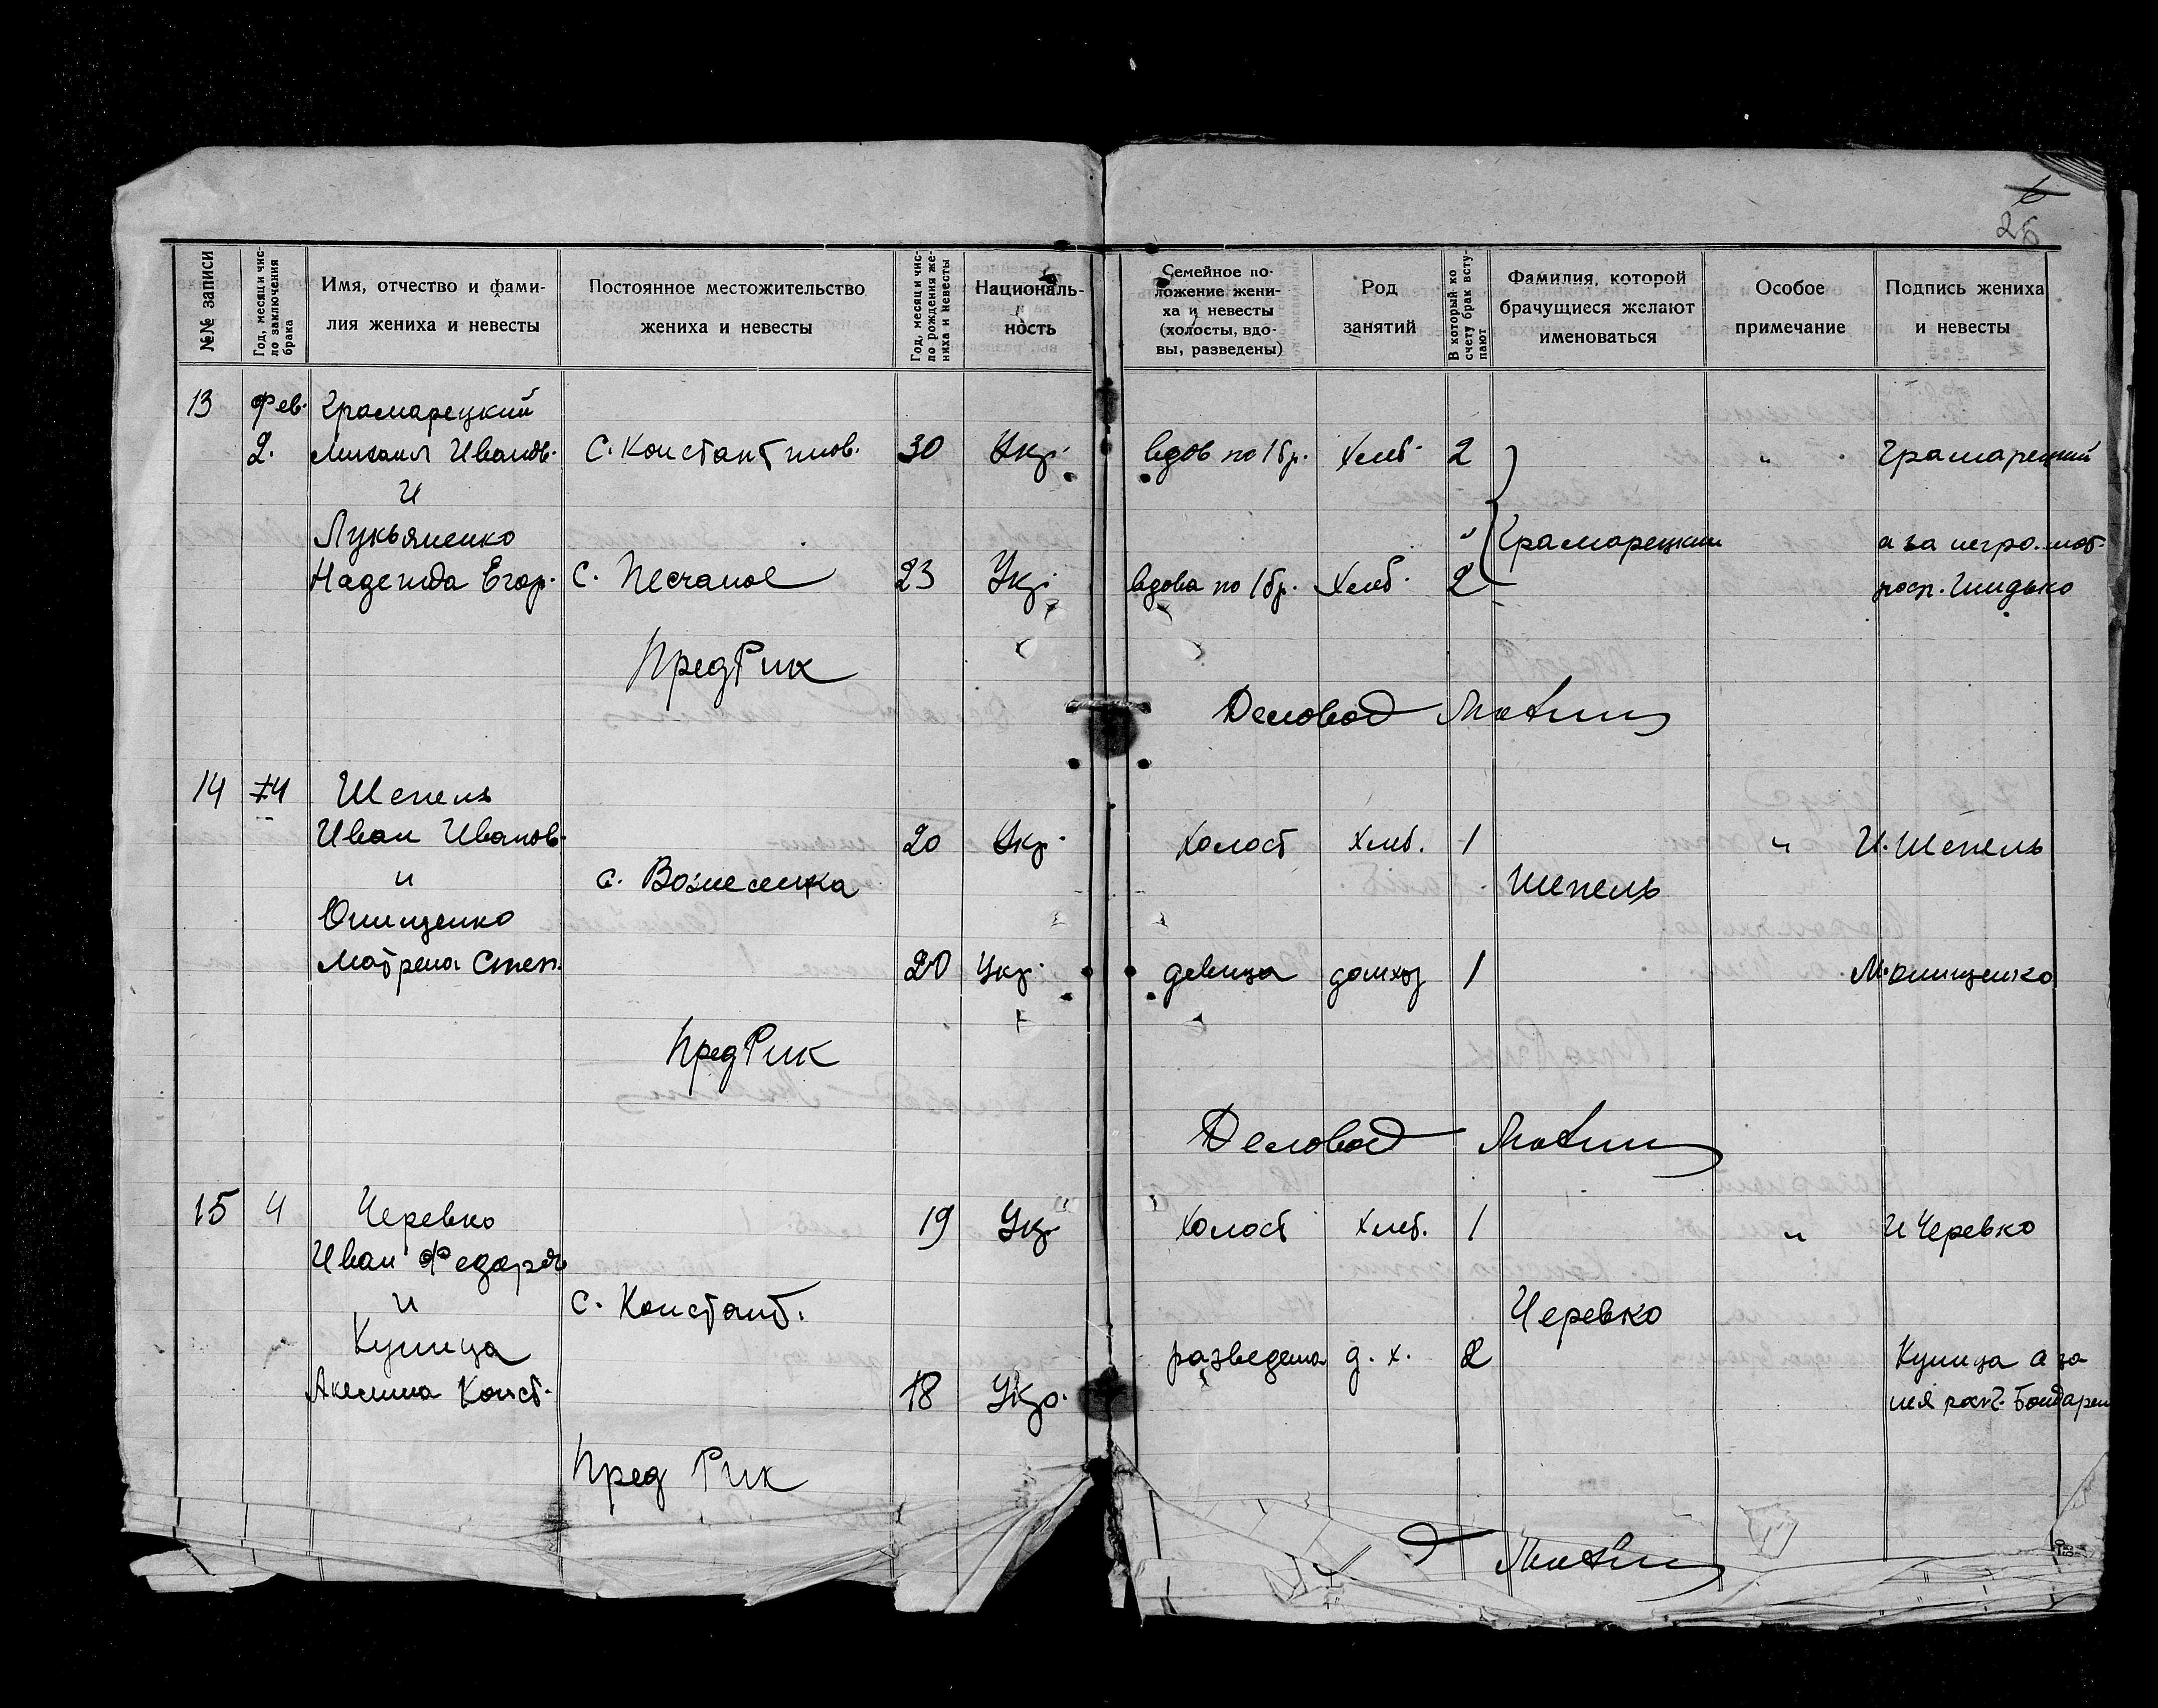 26
№№ записи
Год, месяц и чис-
ло заключения
брака
Имя, отчество и фами-
лия жениха и невесты
Постоянное местожительство
жениха и невесты
Год, месяц и чис-
ло рождения же-
ниха и невесты
Националь-
ность
Семейное по-
ложение жени-
ха и невесты
(холосты, вдо-
вы, разведены)
Род
занятий
В который по
счету брак всту-
пают
Фамилия, которой
брачущиеся желают
именоваться
Особое
примечание
Подпись жениха
и невесты
13 Фев. Грамарецкий
2. Михаил Иванов. С. Константинов. 30 Укр. вдов по 1 бр. Хлеб. 2 " Грамарецкий
и
Лукьяненко " Грамарецкий а за негромот.
Надежда Егор. С. Песчаное 23 Укр. вдова по 1 бр. Хлеб. 2 роsp. Гнидько
ПредРик
Деловод
14 4 Шепель
Иван Иванов. 20 Укр. Холост хлеб. 1 " И. Шепель
и с. Вознесенка Шепель
Онищенко
Матрена Степ. 20 Укр. девица домхоз 1 М. Онищенко
ПредРик
Деловод
15 4 Черевко 19 Укр. Холост хлеб. 1 " И Черевко
Иван Федоров
и С. Констант. Черевко
Куница разведена д. х. 2 Куница а за
Акелина Конст. 18 Укр. нея Бондарен
Пред Рик